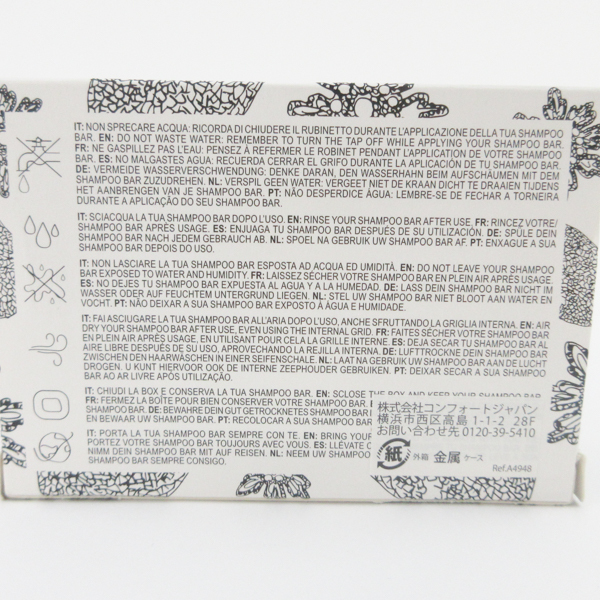 IT: NON SPRECARE ACQUA: RICORDA DI CHIUDERE IL RUBINETTO DURANTE L'APPLICAZIONE DELLA TUA SHAMPOO
BAR. EN: DO NOT WASTE WATER: REMEMBER TO TURN THE TAP OFF WHILE APPLYING YOUR SHAMPOO BAR.
FR: NE GASPILLEZ PAS L'EAU: PENSEZ À REFERMER LE ROBINET PENDANT L'APPLICATION DE VOTRE SHAMPOO
BAR. ES: NO MALGASTES AGUA: RECUERDA CERRAR EL GRIFO DURANTE LA APLICACIÓN DE TU SHAMPOO BAR.
DE: VERMEIDE WASSERVERSCHWENDUNG: DENKE DARAN, DEN WASSERHAHN BEIM AUFSCHÄUMEN MIT DEM
SHAMPOO BAR ZUZUDREHEN. NL: VERSPIL GEEN WATER: VERGEET NIET DE KRAAN DICHT TE DRAAIEN TIJDENS
HET AANBRENGEN VAN JE SHAMPOO BAR. PT: NÃO DESPERDICE ÁGUA: LEMBRE-SE DE FECHAR A TORNEIRA
DURANTE A APLICAÇÃO DO SEU SHAMPOO BAR.
IT: SCIACQUA LA TUA SHAMPOO BAR DOPO L'USO. EN: RINSE YOUR SHAMPOO BAR AFTER USE. FR: RINCEZ VOTRE
SHAMPOO BAR APRÈS USAGE. ES: ENJUAGA TU SHAMPOO BAR DESPUÉS DE SU UTILIZACIÓN. DE: SPÜLE DEIN
SHAMPOO BAR NACH JEDEM GEBRAUCH AB. NL: SPOEL NA GEBRUIK UW SHAMPOO BAR AF. PT: ENXAGUE A SUA
SHAMPOO BAR DEPOIS DO USO.
IT: NON LASCIARE LA TUA SHAMPOO BAR ESPOSTA AD ACQUA ED UMIDITÀ. EN: DO NOT LEAVE YOUR SHAMPOO
BAR EXPOSED TO WATER AND HUMIDITY. FR: LAISSEZ SÉCHER VOTRE SHAMPOO BAR EN PLEIN AIR APRÈS USAGE.
ES: NO DEJES TU SHAMPOO BAR EXPUESTO AL AGUA Y A LA HUMEDAD. DE: LASS DEIN SHAMPOO BAR NICHT IM
WASSER ODER AUF FEUCHTEM UNTERGRUND LIEGEN. NL: STEL UW SHAMPOO BAR NIET BLOOT AAN WATER EN
VOCHT. PT: NÃO DEIXAR O SHAMPOO BAR EXPOSTO À ÁGUA E HUMIDADE.
IT: FAI ASCIUGARE LA TUA SHAMPOO BAR ALL'ARIA DOPO L'USO, ANCHE SFRUTTANDO LA GRIGLIA INTERNA. EN: AIR
DRY YOUR SHAMPOO BAR AFTER USE, EVEN USING THE INTERNAL GRID. FR: FAITES SÉCHER VOTRE SHAMPOO BAR
EN PLEIN AIR APRÈS USAGE, EN UTILISANT POUR CELA LA GRILLE INTERNE. ES: DEJA SECAR TU SHAMPOO BAR AL
AIRE LIBRE DESPUÉS DE SU USO, APROVECHANDO LA REJILLA INTERNA. DE: LUFTTROCKNE DEIN SHAMPOO BAR
ZWISCHEN DEN HAARWÄSCHEN IN EINER SEIFENSCHALE. NL: LAAT NA GEBRUIK UW SHAMPOO BAR AAN DE LUCHT
DROGEN. U KUNT HIERVOOR OOK DE INTERNE ZEEPHOUDER GEBRUIKEN. PT: DEIXAR SECAR A SUA SHAMPOO
BAR AO AR LIVRE APÓS UTILIZAÇÃO.
IT: CHIUDI LA BOX E CONSERVA LA TUA SHAMPOO BAR. EN: SCLOSE THE BOX AND KEEP YOUR SHAMPOO BAR.
FR: FERMEZ LA BOÎTE POUR BIEN CONSERVER VOTRE SHAMPOO BAR. E
BAR. DE: BEWAHRE DEIN GUT GETROCKNETES SHAMPOO BAR I
UW SHAMPOO BAR. PT: RECOLOCAR A SUA SHAMPOO BAR
IT: PORTA LA TUA SHAMPOO BAR SEMPRE CON TE. EN: BRING YOUR
PORTEZ VOTRE SHAMPOO BAR TOUJOURS AVEC VOUS. ES: LLÉVATE
NIMM DEIN SHAMPOO BAR MIT AUF REISEN. NL: NEEM UW SHAMPOO
SHAMPOO BAR SEMPRE CONSIGO.
株式会社コンフォートジャパン
横浜市西区高島 1-1-2 28F
お問い合わせ先 0120-39-5410
紙 外箱 金属 ケース
Ref.A4948